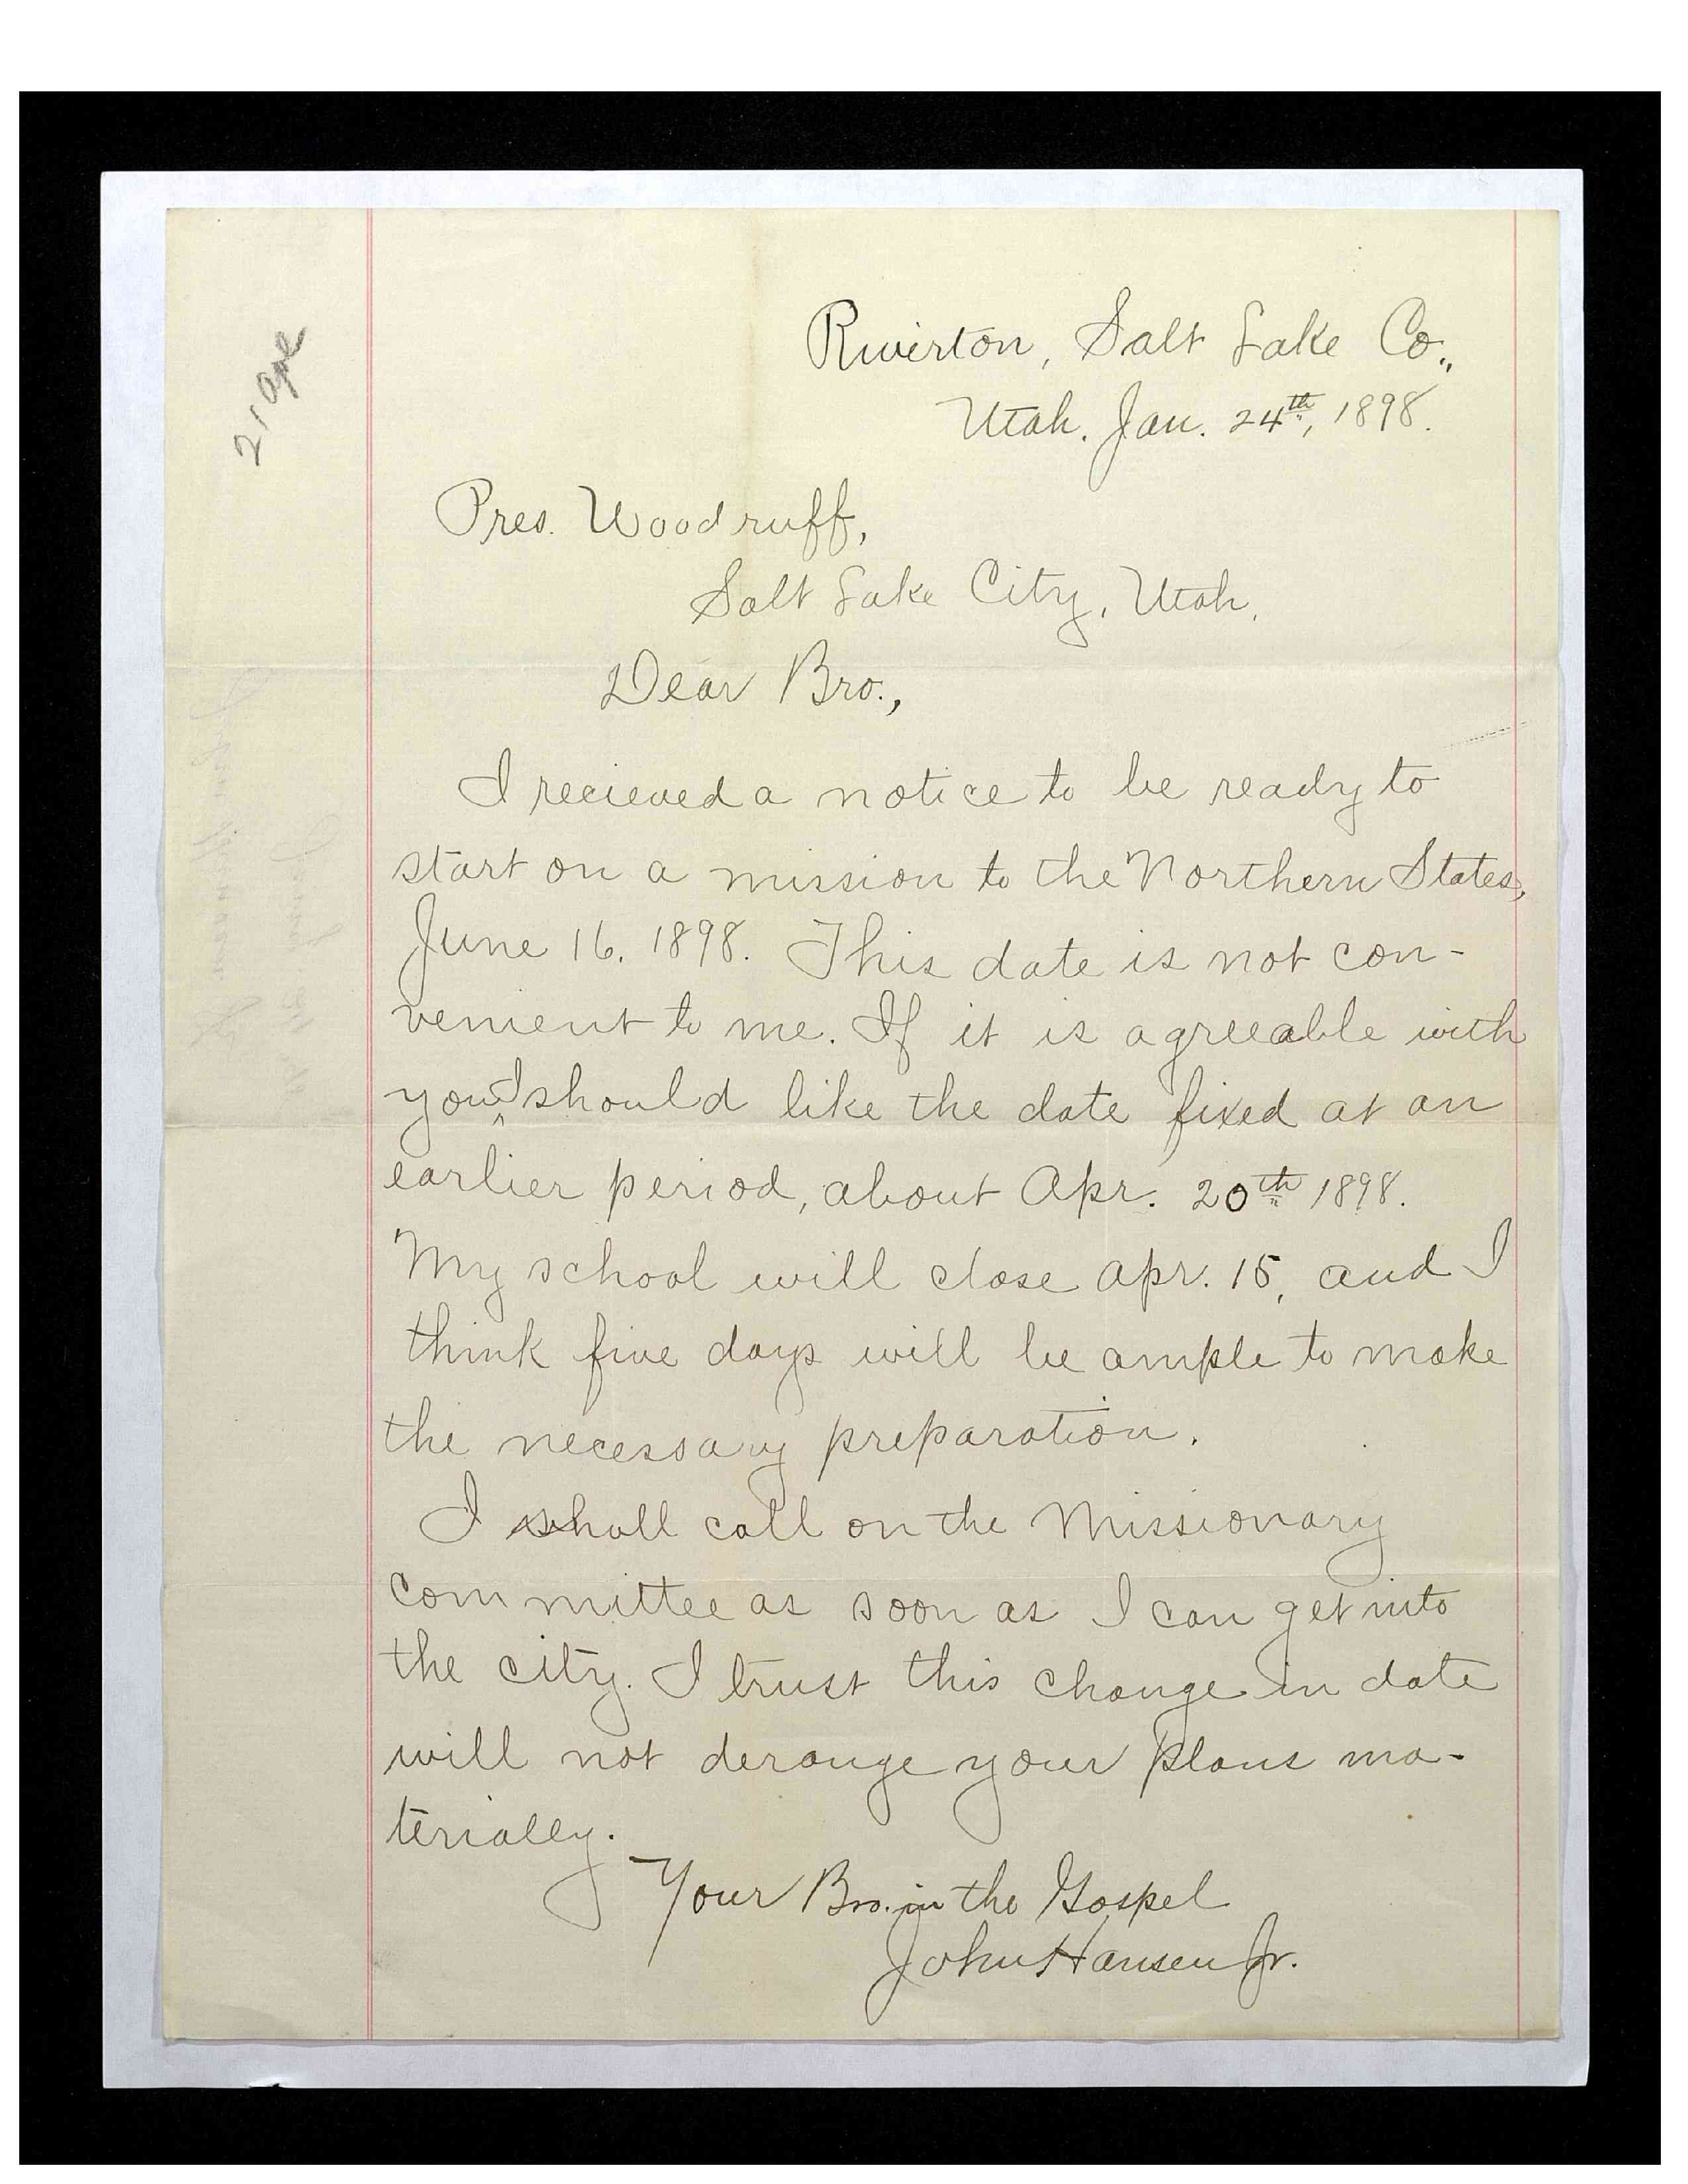 21 Apl
Riverton, Salt Lake Co.,
Utah. Jan. 24th, 1898.
Pres. Woodruff,
Salt Lake City, Utah,
Dear Bro.,
I recieved a notice to be ready to
start on a mission to the Northern States,
June 16. 1898. This date is not con-
venient to me. If it is agreeable with
you I should like the date fixed at an
earlier period, about Apr. 20th 1898.
My school will close Apr. 15, and I
think five days will be ample to make
the necessary preparation.
I shall call on the Missionary
committee as soon as I can get into
the city. I trust this change in date
will not derange your plans ma-
terially.
Your Bro. in the Gospel
John Hansen Jr.